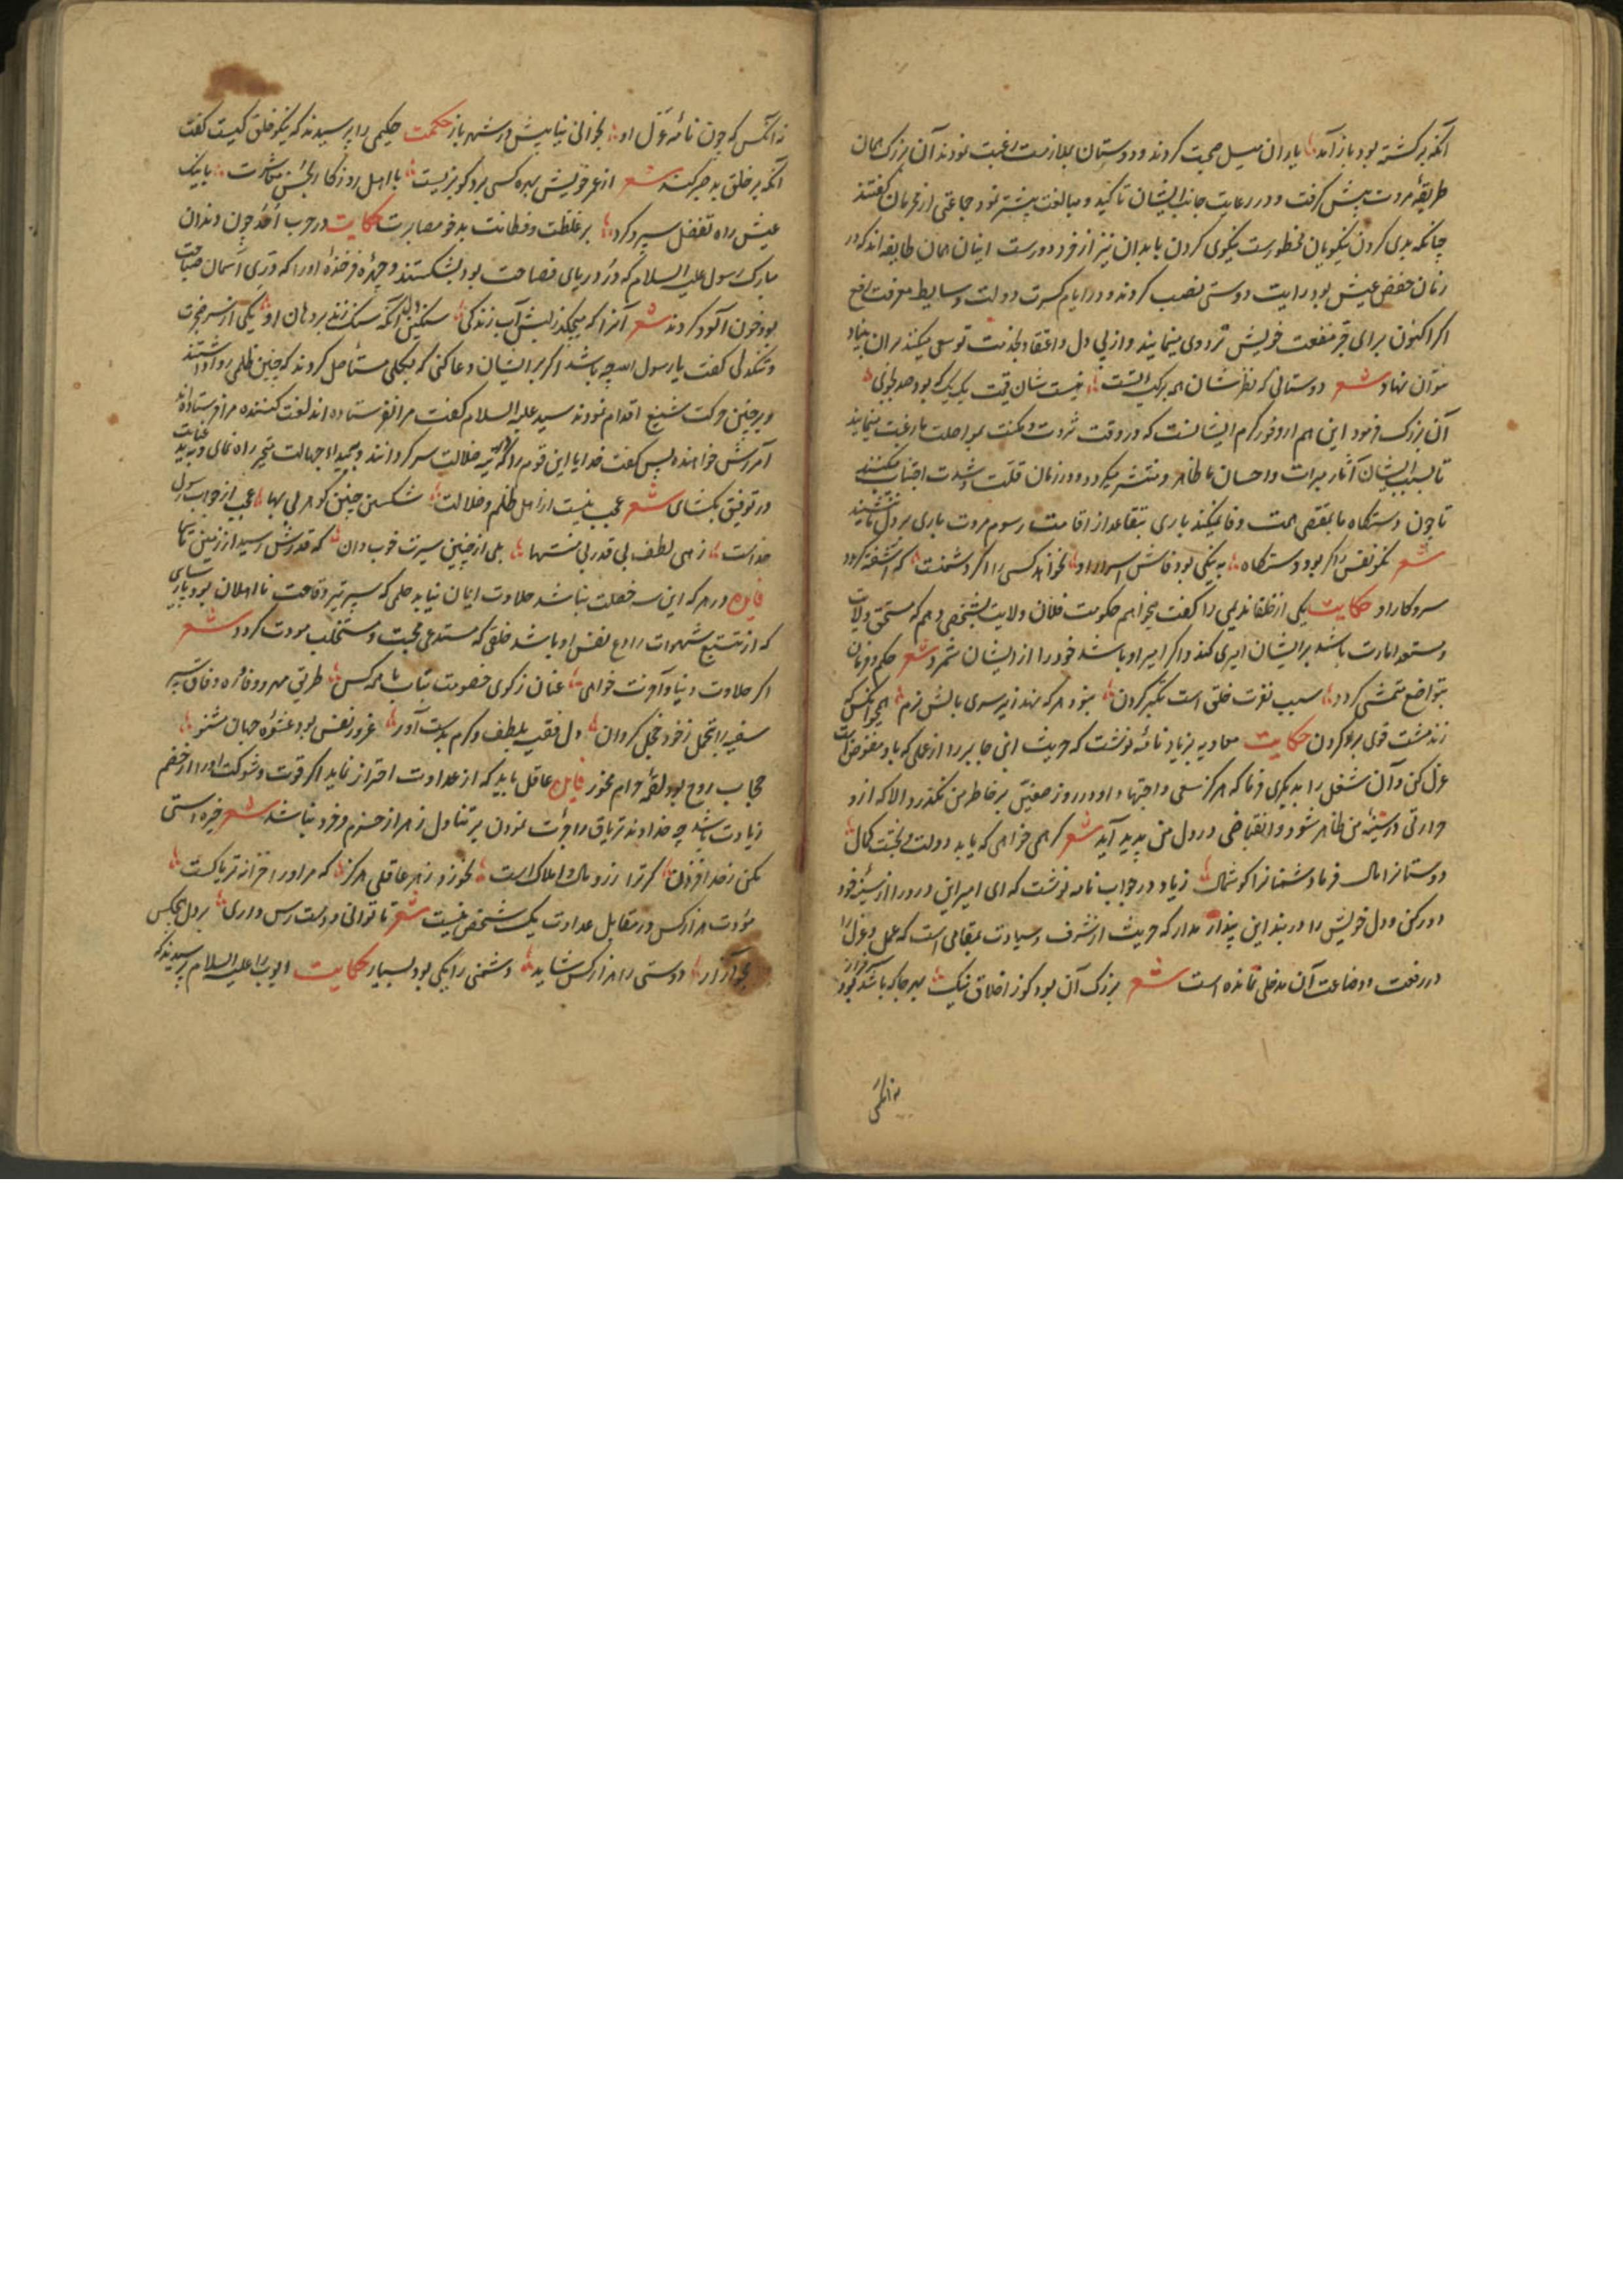 آنکه برگشته بود باز آمد یاران میل صحبت کردند و دوستان بملازمت رغبت نمودند آن بزرک همان
طریقهٔ مروت پیش کرفت و در رعایت جانب ایشان تاکید و مبالغت بیشتر نمود جماعتی از محرمان کفتند
چنانکه بدی کردن نیکویان محظورست نیکوی کردن با بدان نیز از خرد دورست اینان همان طایفه اند که در
زمان خفض عیش بود رایت دوستی نصب کردند و در ایام کسرت دولت وسایط معرفت رفع
اکر اکنون برای جر منفعت خویش ترددی مینمایند و از بی دل و اعتقاد بخدمت توسعی میکنند بران بنیاد
نتوان نهاد شعر دوستانی که نظرشان همه بر کیسه تست نیست شان قیمت یک یک که بود صد بجوی
آن بزرک فرمود این هم از وفور کرم ایشانست که در وقت ثروت و مکنت بمواصلت ما رغبت مینمایند
تا بسبب ایشان آثار مبرات و احسان ما ظاهر و منتشر میکردد و در زمان قلت و شدت اجتناب میکنند
تا چون دستکاه ما بمقتضی همت وفا نمیکند باری تقاعد از اقامت رسوم مروت باری بر دل ما ننشیند
شعر نکو نفس را کر بود دستکاه به نیکی بود فاش اسرار او نخواهد کسی را اکر دشمنست که آشفته کردد
سر و کار او حکایت یکی از خلفا ندیمی را کفت میخواهم حکومت فلان ولایت بشخصی دهم که مستحق ولایت
و مستعد امارت باشد بر ایشان امیری کند و اکر امیر او باشد خود را از ایشان شمرد شعر حکم و فرمان
بتواضع متمشی کردد سبب نفرت خلق است تکبر کردن بنود هر که نهد زیر سری بالش نرم همچو آنکس که
زند مشت قوی بر کردن حکایت معاویه بزیاد نامهٔ نوشت که حریث ابن جابر را از عملی که باو مفوض است
عزل کن و آن شغل را بدیکری فرما که هرکز سعی و اجتهاد او در روز صفین بر خاطر من نکذرد الا که ازو
حرارتی در سینهٔ من ظاهر شود و انقباضی در دل من پدید آید شعر کر همی خواهی که یابد دولت و بختت کمال
دوستانرا مال فرما دشمنانرا کوشمال زیاد در جواب نامه نوشت که ای امیر این درد را از سینهٔ خود
دور کن و دل خویش را در بند این پندار مدار که حریث از شرف و سیادت بمقامی است که عمل و عزل را
در رفعت و وضاعت آن مدخلی نمانده است شعر بزرک آن بود کو ز اخلاق نیک بهر جا که باشد بود سرفراز
نه آنکس
نه آنکس که چون نامهٔ عزل او بخوانی نیابیش در شهر باز حکمت حکیمی را پرسیدند که نیکو خلق کیست کفت
آنکه بر خلق بد صبر کند شعر از عمر خویش بهره کسی برد کو بزیست با اهل روزکار بحسن معاشرت با نیک
عیش راه تفضل سپرد کرد بر غلظت و فظاظت بدخو مصابرت حکایت در حرب احد چون دندان
مبارک رسول علیه السلام که در دریای فصاحت بود بشکستند و چهرهٔ فرخندهٔ او را که قمر آسمان صباحت
بود خون آلود کردند شعر آنرا که میچکد ز لبش آب زندکی سنکین دل آنکه سنک زند بر دهان او یکی از سر ضجرت
و تنکدلی کفت یا رسول الله چه باشد اکر بر ایشان دعا کنی که بکلی مستأصل کردند که چنین ظلمی روا داشتند
و بر چنین حرکت شنیع اقدام نمودند سید علیه السلام کفت مرا نفرستاده اند لعنت کننده مرا فرستاده اند
آمرزش خواهنده پس کفت خدایا این قوم را که در تیه ضلالت سرکردانند و بمبیداء جهالت متحیر راه نمای و بتایید عنایت
در توفیق بکشای شعر عجب نیست از اهل ظلم و ضلالت شکستن چنین کوهر بی بها عجب از جواب رسول
خداست زهی لطف بی قدر بی منتها بلی از چنین سیرت خوب دان که قدرش رسید از زمین تا سما
فایده در هر که این سه خصلت نباشد حلاوت ایمان نیابد حلمی که سپر تیر وقاحت نااهلان بود پارسایی
که از تتبع شهوات رادع نفس او باشد خلقی که مستدعی محبت و مستجلب مودت کردد شعر
اکر حلاوت دنیا و آخرت خواهی عنان ز کوی خصومت بتاب با همه کس طریق مهر و وفا ره وفاق سپر
سفیه را بتحمل ز خود خجل کردان دل فقیه بلطف و کرم بدست آور غرور نفس بود عشوهٔ جهان مشنو
حجاب روح بود لقمهٔ حرام مخور فایده عاقل باید که از عداوت احتراز نماید اکر قوت و شوکت او را از خصم
زیادت باشد چه خداوند تریاق را جرأت نمودن بر تناول زهر از حزم و خرد نباشد شعر خیره استی
مکن ز حد افزون کر ترا زر و مال و املاک است نخورد زهر عاقلی هرکز که مرا در خزانه تریاکست
مودت هزار کس در مقابل عداوت یک شخص نیست شعر تا توانی دوست رس داری بر دل هیچکس
مجو آزار دوستی را هزار کس شاید دشمنی را یکی بود بسیار حکایت ایوب را علیه السلام پرسیدند که